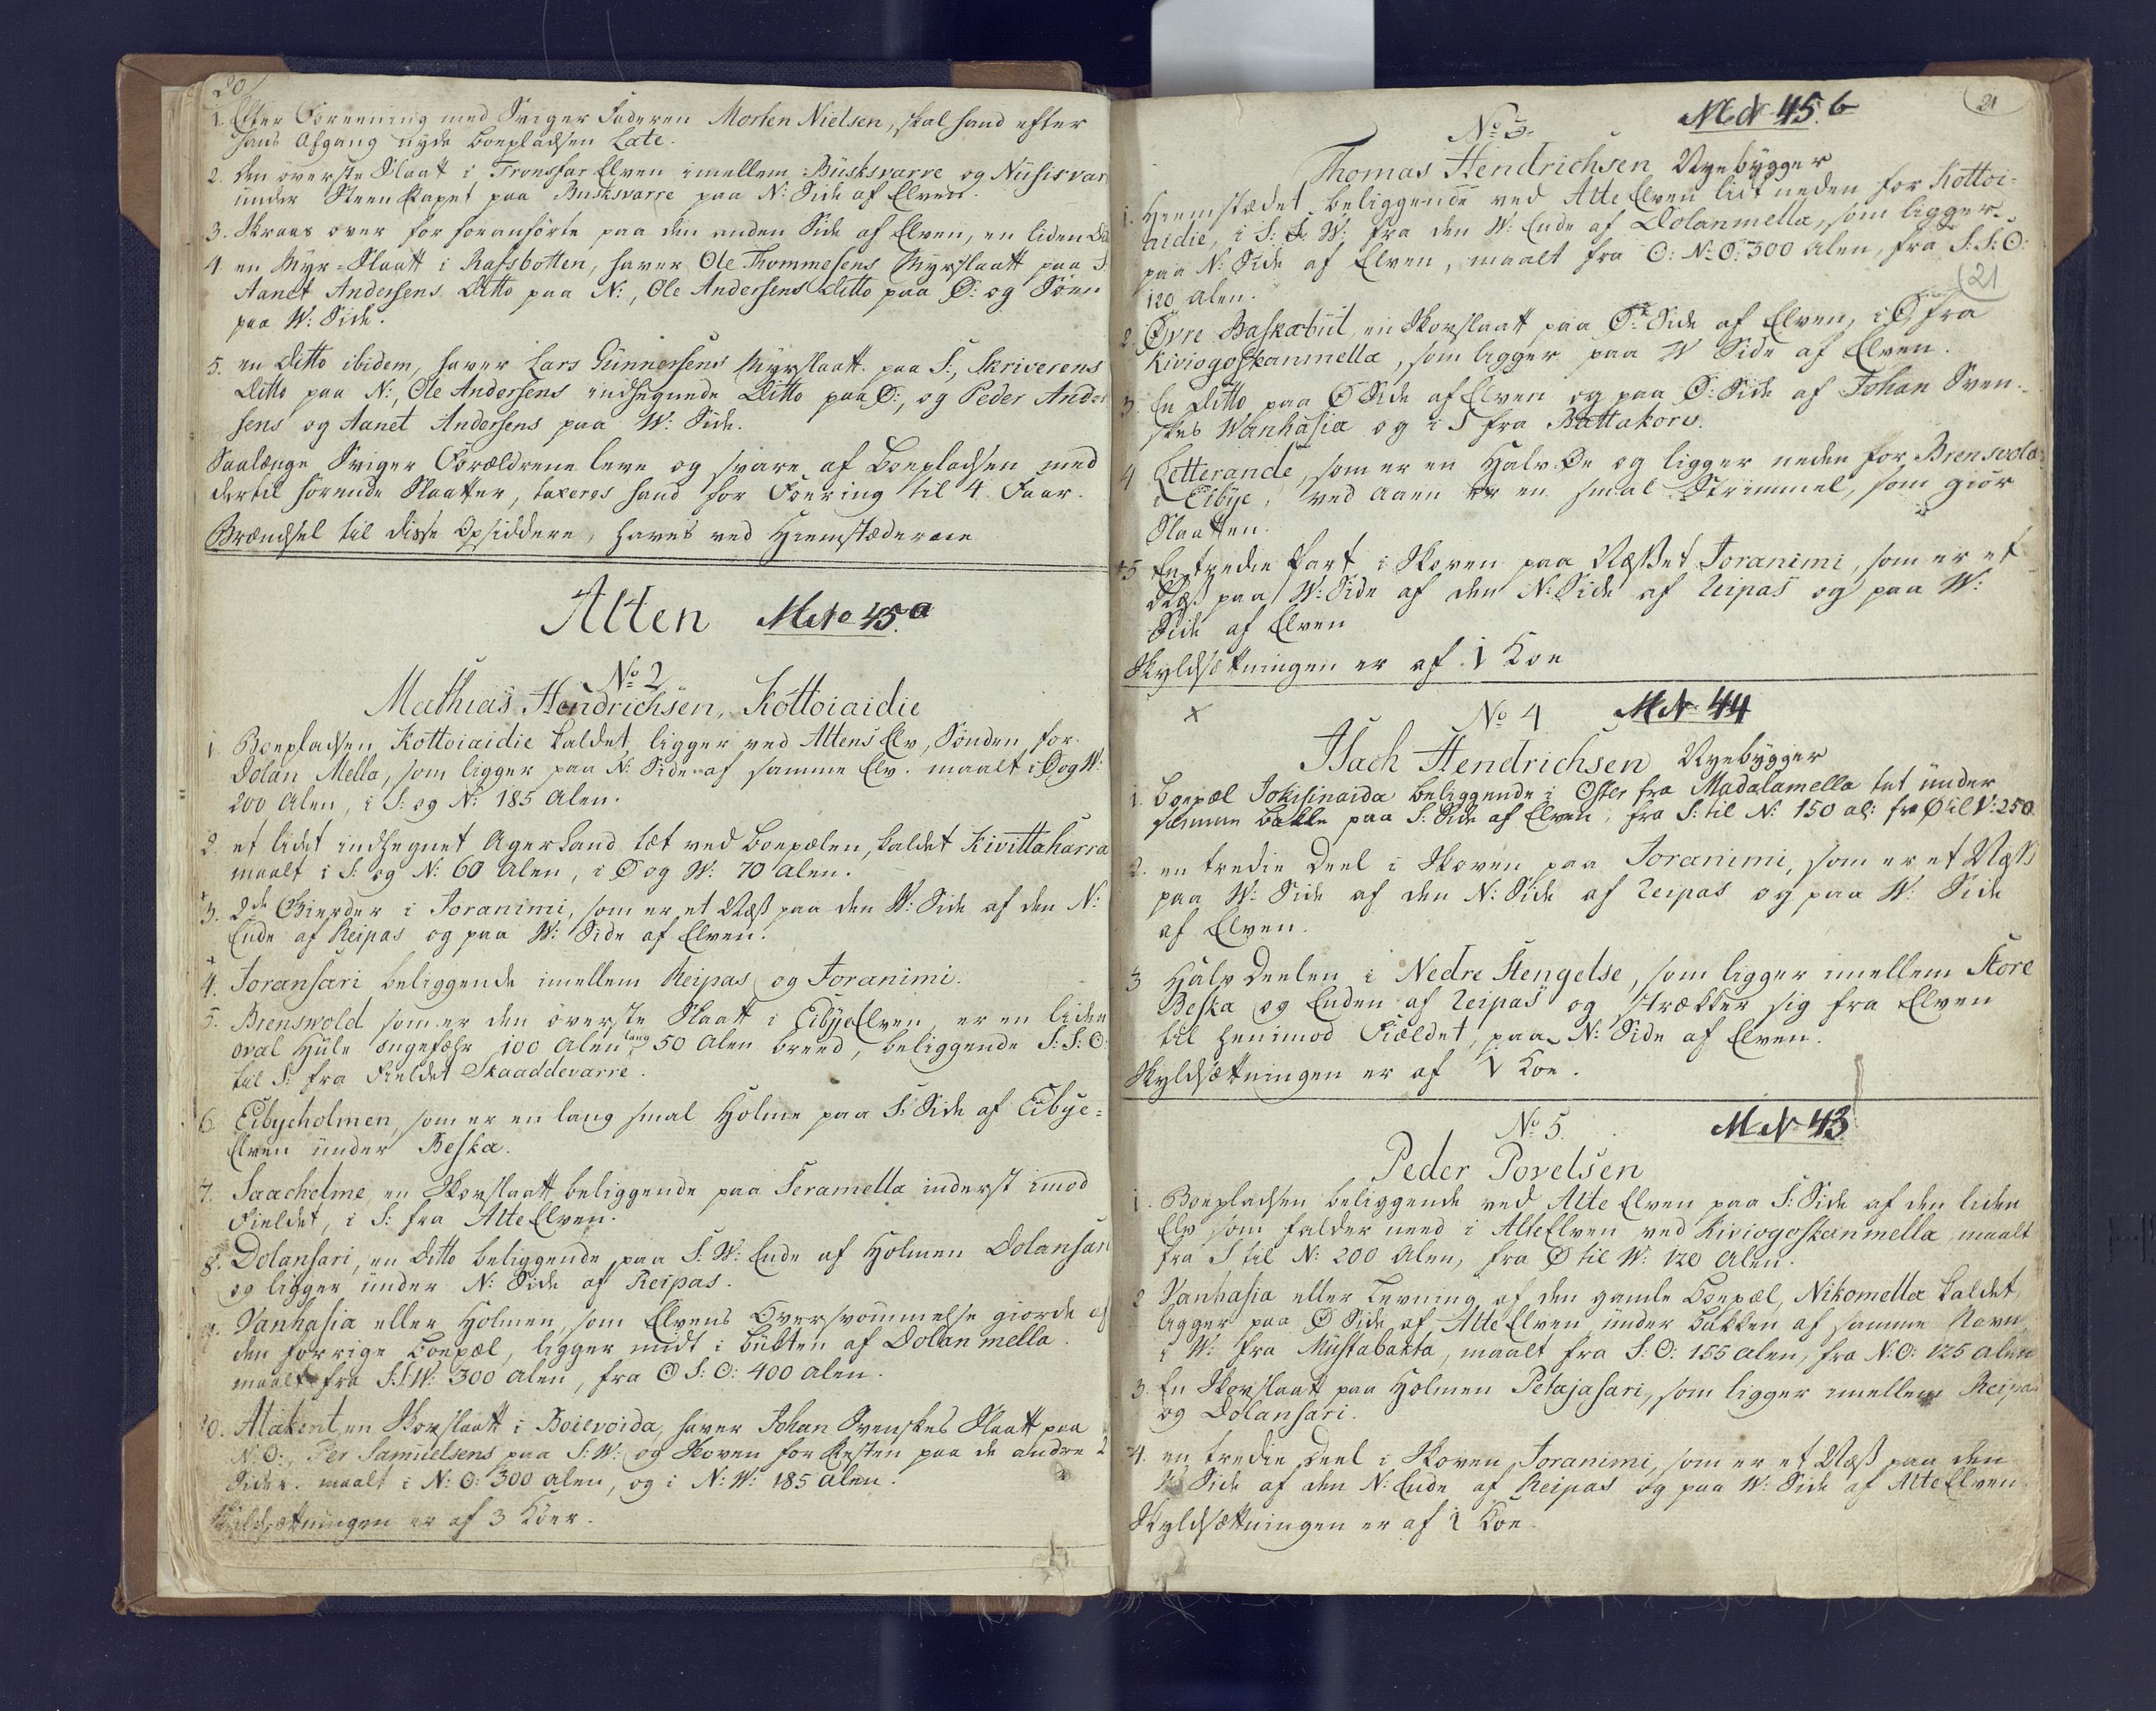 20
1. Efter Foreening med Sviger Faderen Morten Nielsen, skal hand efter
hans Afgang nyde Boepladsen Late.
2. den øverste Slaatt i Tronsfar Elven imellem Busksvarre og Niisisvar
under Steen Skapet paa Busksvarre paa N: Side af Elven.
3. Skraas over for foranførte paa den anden Side af Elven, en liden
4. en Myr-Slaatt i Rafsbotten, haver Ole Thommesens Myrslaatt paa S
Aanet Andersens Ditto paa N:, Ole Andersens ditto paa Ø: og Søen
paa W: Side.
5. en Ditto ibidem, haver Lars Gunnersens Myrslaatt paa S:, Skriverens
Ditto paa N:, Ole Andersens indhegnede Ditto paa Ø:, og Peder Ander
sens og Aanet Andersens paa W: Side.
Saalænge Sviger Forældrene leve og svare af Boepladsen med
dertil hørende Slaatter, taxeres hand for Foering til 4 Faar.
Brændsel til disse Opsiddere, haves ved Hiemstæderne
Alten MNo 45.a
No 2
Mathias Hendrichsen, Kottoiaidie
1. Boepladsen, Kottoiaidie kaldet, ligger ved Altens Elv, Sønden for
Dolan Mella, som ligger paa N: Side af samme Elv. maalt i Ø og W:
200 Alen, i S: og N: 185 Alen.
2. et lidet indhegnet Agerland tæt ved Boepælen, kaldet Kivittaharra
maalt i S: og N: 60 Alen, i Ø og W: 70 Alen.
3. 2de Gierder i Joranimi, som er et Næss paa den W: Side af den N:
Ende af Reipas og paa W: Side af Elven.
4. Joransari beliggende imellem Reipas og Joranimi.
5. Brenswold som er den øverste Slaatt i Eibye Elven, er en liden
oval Hule ongefæhr 100 Alen lang 50 Alen breed, beliggende S:S:O:
til S: fra Fieldet Skaaddevarre.
6. Eibyeholmen, som er en lang smal Holme paa S: Side af Eibye-
Elven under Beska.
7. Saachelme, en Skovslaatt, beliggende paa Feramella inderst imod
Fieldet, i S: fra Alte Elven.
8. Dolansari, en Ditto beliggende paa S: W: Ende af Holmen Dolansari
og ligger under N: Side af Reipas.
9. Vanhasia eller Holmen, som Elvens Oversvømmelse giorde af
den forrige Boepæl, ligger midt i Bugten af Dolan mella.
maalt fra S.S.W: 300 alen, fra O S:O: 400 alen.
10. Alakent, en Skovslaatt i Boievoida, haver Johan Svenskes Slaatt paa
N:O:, Per Samuelsens paa S:W: og Skoven for Resten paa de andre 2
Sider. maalt i N:O: 300 alen, og i N:W: 185 alen.
Skyldsætningen er af 3 Kiøer.
21
No 3. MNo 45.b
Thomas Hendrichsen Nyebygger
1. Hiemstædet beliggende ved Alte Elven lidt neden for Kottoi-
aidie, i S: W: fra den W: Ende af Dolanmella, som ligger
paa N: Side af Elven, maalt fra O: N:O: 300 Alen, fra S:S:O:
120 Alen.
21
2. Øvre Baskabut, en Skovslaatt paa Ø: Side af Elven, i Ø fra
Kiviogoskanmella, som ligger paa W Side af Elven.
3. En Ditto paa Ø Side af Elven og paa Ø: Side af Johan Sven-
skes Wanhasia og i S fra Battakorv.
4 Letterande, som er en Halv Øe og ligger neden for Brensvold
i Eibye, ved Aaen er en smal Strimmel, som giør
Slaatten.
+5 En tredie Part i Skoven paa Næsset Joranimi, som er et
Næss paa W: Side af den N: Side af Reipas og paa W:
Side af Elven
Skyldsætningen er af 1 Koe
x No 4 MNo 44
Isach Hendrichsen Nyebygger
1. Boepæl Jokisinaida beliggende i Øster fra Madalamella tæt under
samme Bakke paa S: Side af Elven, fra S: til N: 150 al: fra Ø til V: 250.
2. en tredie Deel i Skoven paa Joranimi, som er et Næss
paa W: Side af den N: Side af Reipas og paa W: Side
af Elven.
3 Halv Deelen i Nedre Stengelse, som ligger imellem Store
Beska og Enden af Reipas og strækker sig fra Elven
til henimod Fieldet, paa N: Side af Elven.
Skyldsætningen er af 1 Koe.
No 5. MNo 43
Peder Povelsen
1. Boepladsen beliggende ved Alte Elven paa S: Side af den liden
Elv som falder need i Alte Elven ved Kiviogoskanmella, maalt
fra S til N: 200 Alen, fra Ø til W: 120 Alen.
2 Vanhasia eller Levning af den gamle Boepæl, Nikomella kaldet,
ligger paa Ø Side af Alte Elven under Bakken af samme Navn
i W: fra Mustabakta, maalt fra S:O: 155 Alen, fra N:O: 125 Alen
3. En Skovslaatt paa Holmen Petajasari, som ligger imellem Reipas
og Dolansari.
4. en tredie Deel i Skoven Joranimi, som er et Næss paa den
W Side af den N: Ende af Reipas og paa W: Side af Alte Elven.
Skyldsætningen er af 1 Koe